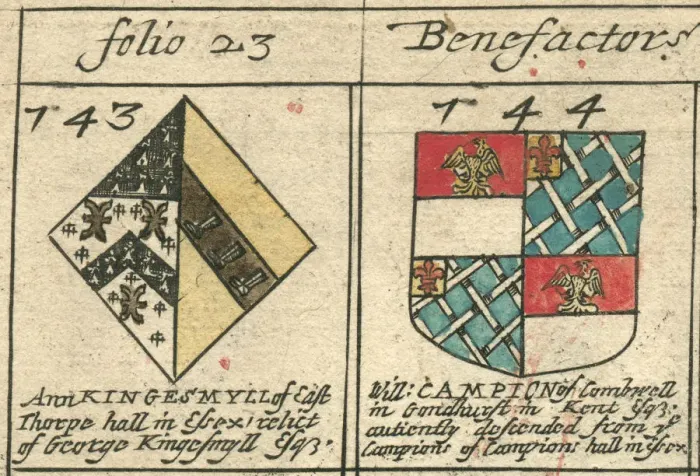 folio 23
Benefactors
743
744
Ann KINGESMYLL of East
Thorpe hall in Essex; relict
of George Kingesmyll Esqz.
Will: CAMPION of Combwell
in Gondhurst in Kent Esqz:
antiently descended from ye
Campions of Campions hall in Essex